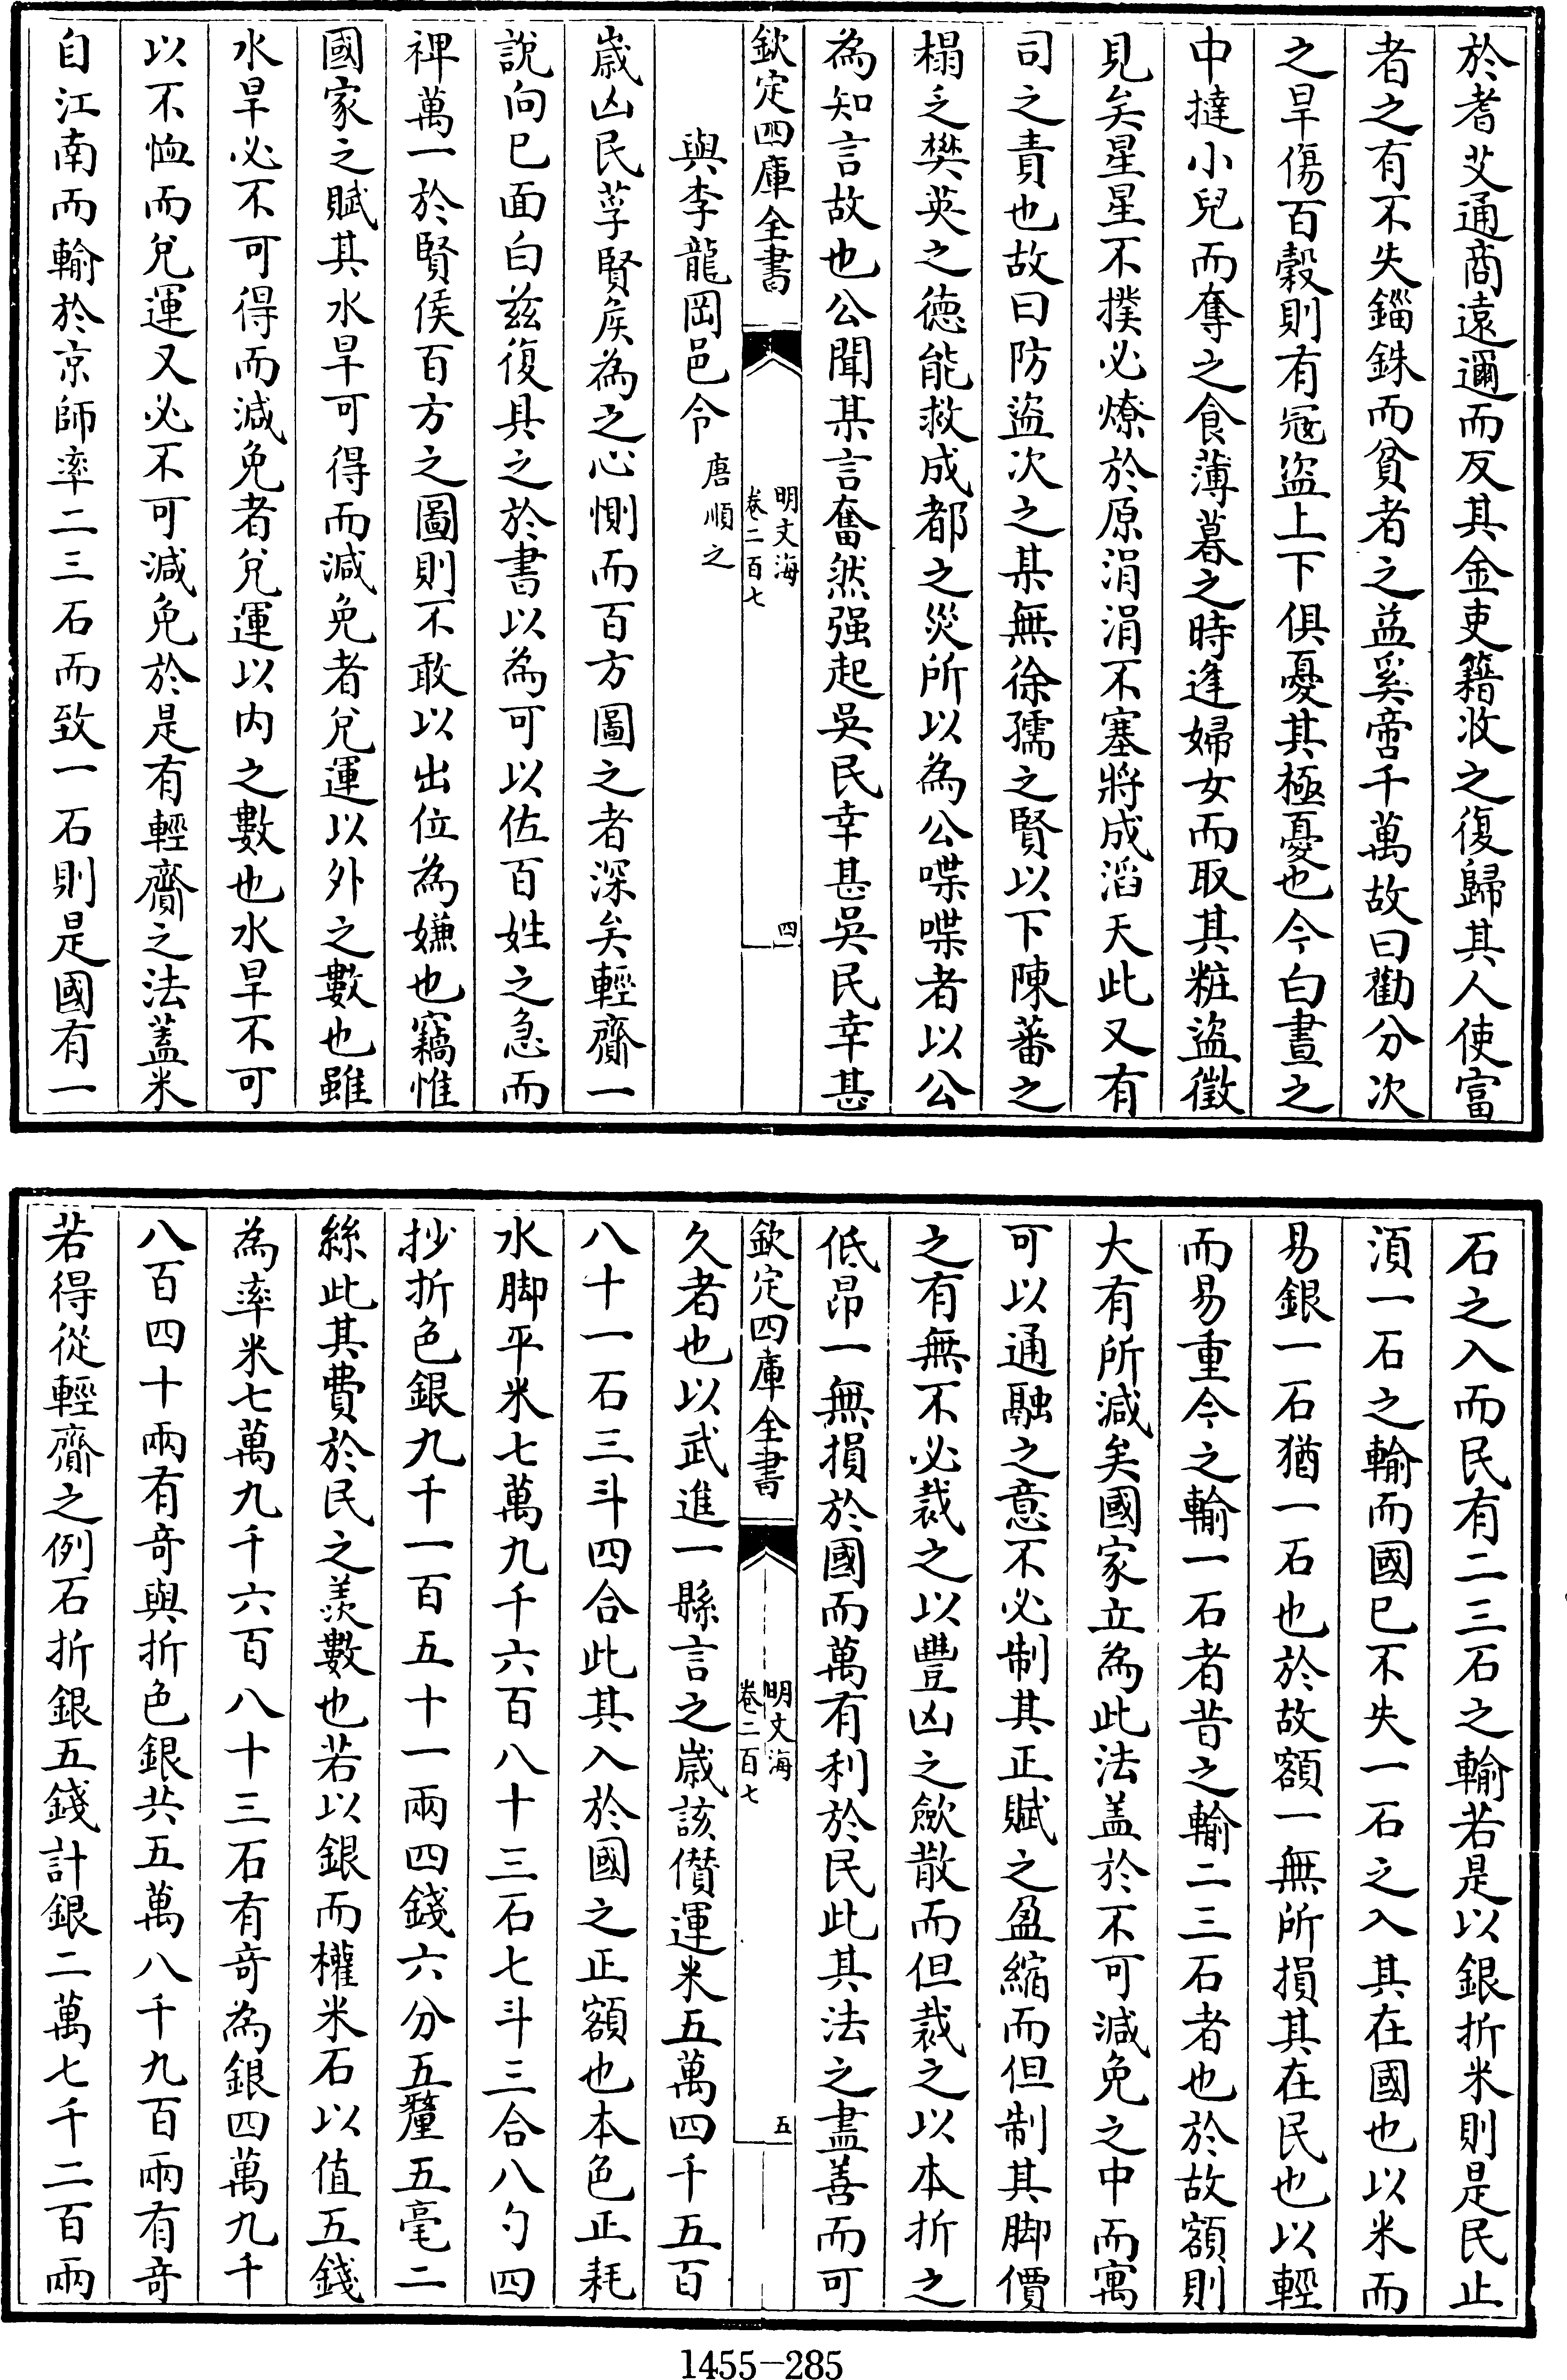 於耆艾通商遠邇而反其金吏籍收之復歸其人使富
者之有不失錙銖而貧者之益奚啻千萬故曰勸分次
之旱傷百穀則有冦盜上下俱憂其極憂也今白晝之
中撻小兒而奪之食薄暮之時逢婦女而取其粧盜徵
見矣星星不撲必燎於原涓涓不塞將成滔天此又有
司之責也故曰防盜次之某無徐孺之賢以下陳蕃之
榻乏樊英之德能救成都之災所以為公喋喋者以公
為知言故也公聞某言奮然强起吳民幸甚吳民幸甚
欽定四庫全書
明文海
卷二百七
四
與李龍岡邑令 唐順之
歲凶民莩賢矦為之心惻而百方圖之者深矣輕齎一
說向已面白兹復具之於書以為可以佐百姓之急而
裨萬一於賢侯百方之圖則不敢以出位為嫌也竊惟
國家之賦其水旱可得而減免者兌運以外之數也雖
水旱必不可得而減免者兌運以内之數也水旱不可
以不恤而兌運又必不可減免於是有輕齎之法蓋米
自江南而輸於京師率二三石而致一石則是國有一
石之入而民有二三石之輸若是以銀折米則是民止
湏一石之輸而國已不失一石之入其在國也以米而
易銀一石猶一石也於故額一無所損其在民也以輕
而易重今之輸一石者昔之輸二三石者也於故額則
大有所減矣國家立為此法盖於不可減免之中而寓
可以通融之意不必制其正賦之盈縮而但制其脚價
之有無不必裁之以豐凶之歛散而但裁之以本折之
低昂一無損於國而萬有利於民此其法之盡善而可
欽定四庫全書
明文海
卷二百七
五
久者也以武進一縣言之歲該儧運米五萬四千五百
八十一石三斗四合此其入於國之正額也本色正耗
水脚平米七萬九千六百八十三石七斗三合八勺四
抄折色銀九千一百五十一兩四錢六分五釐五毫二
絲此其費於民之羨數也若以銀而權米石以值五錢
為率米七萬九千六百八十三石有竒為銀四萬九千
八百四十兩有竒與折色銀共五萬八千九百兩有竒
若得從輕齎之例石折銀五錢計銀二萬七千二百兩
1455—285